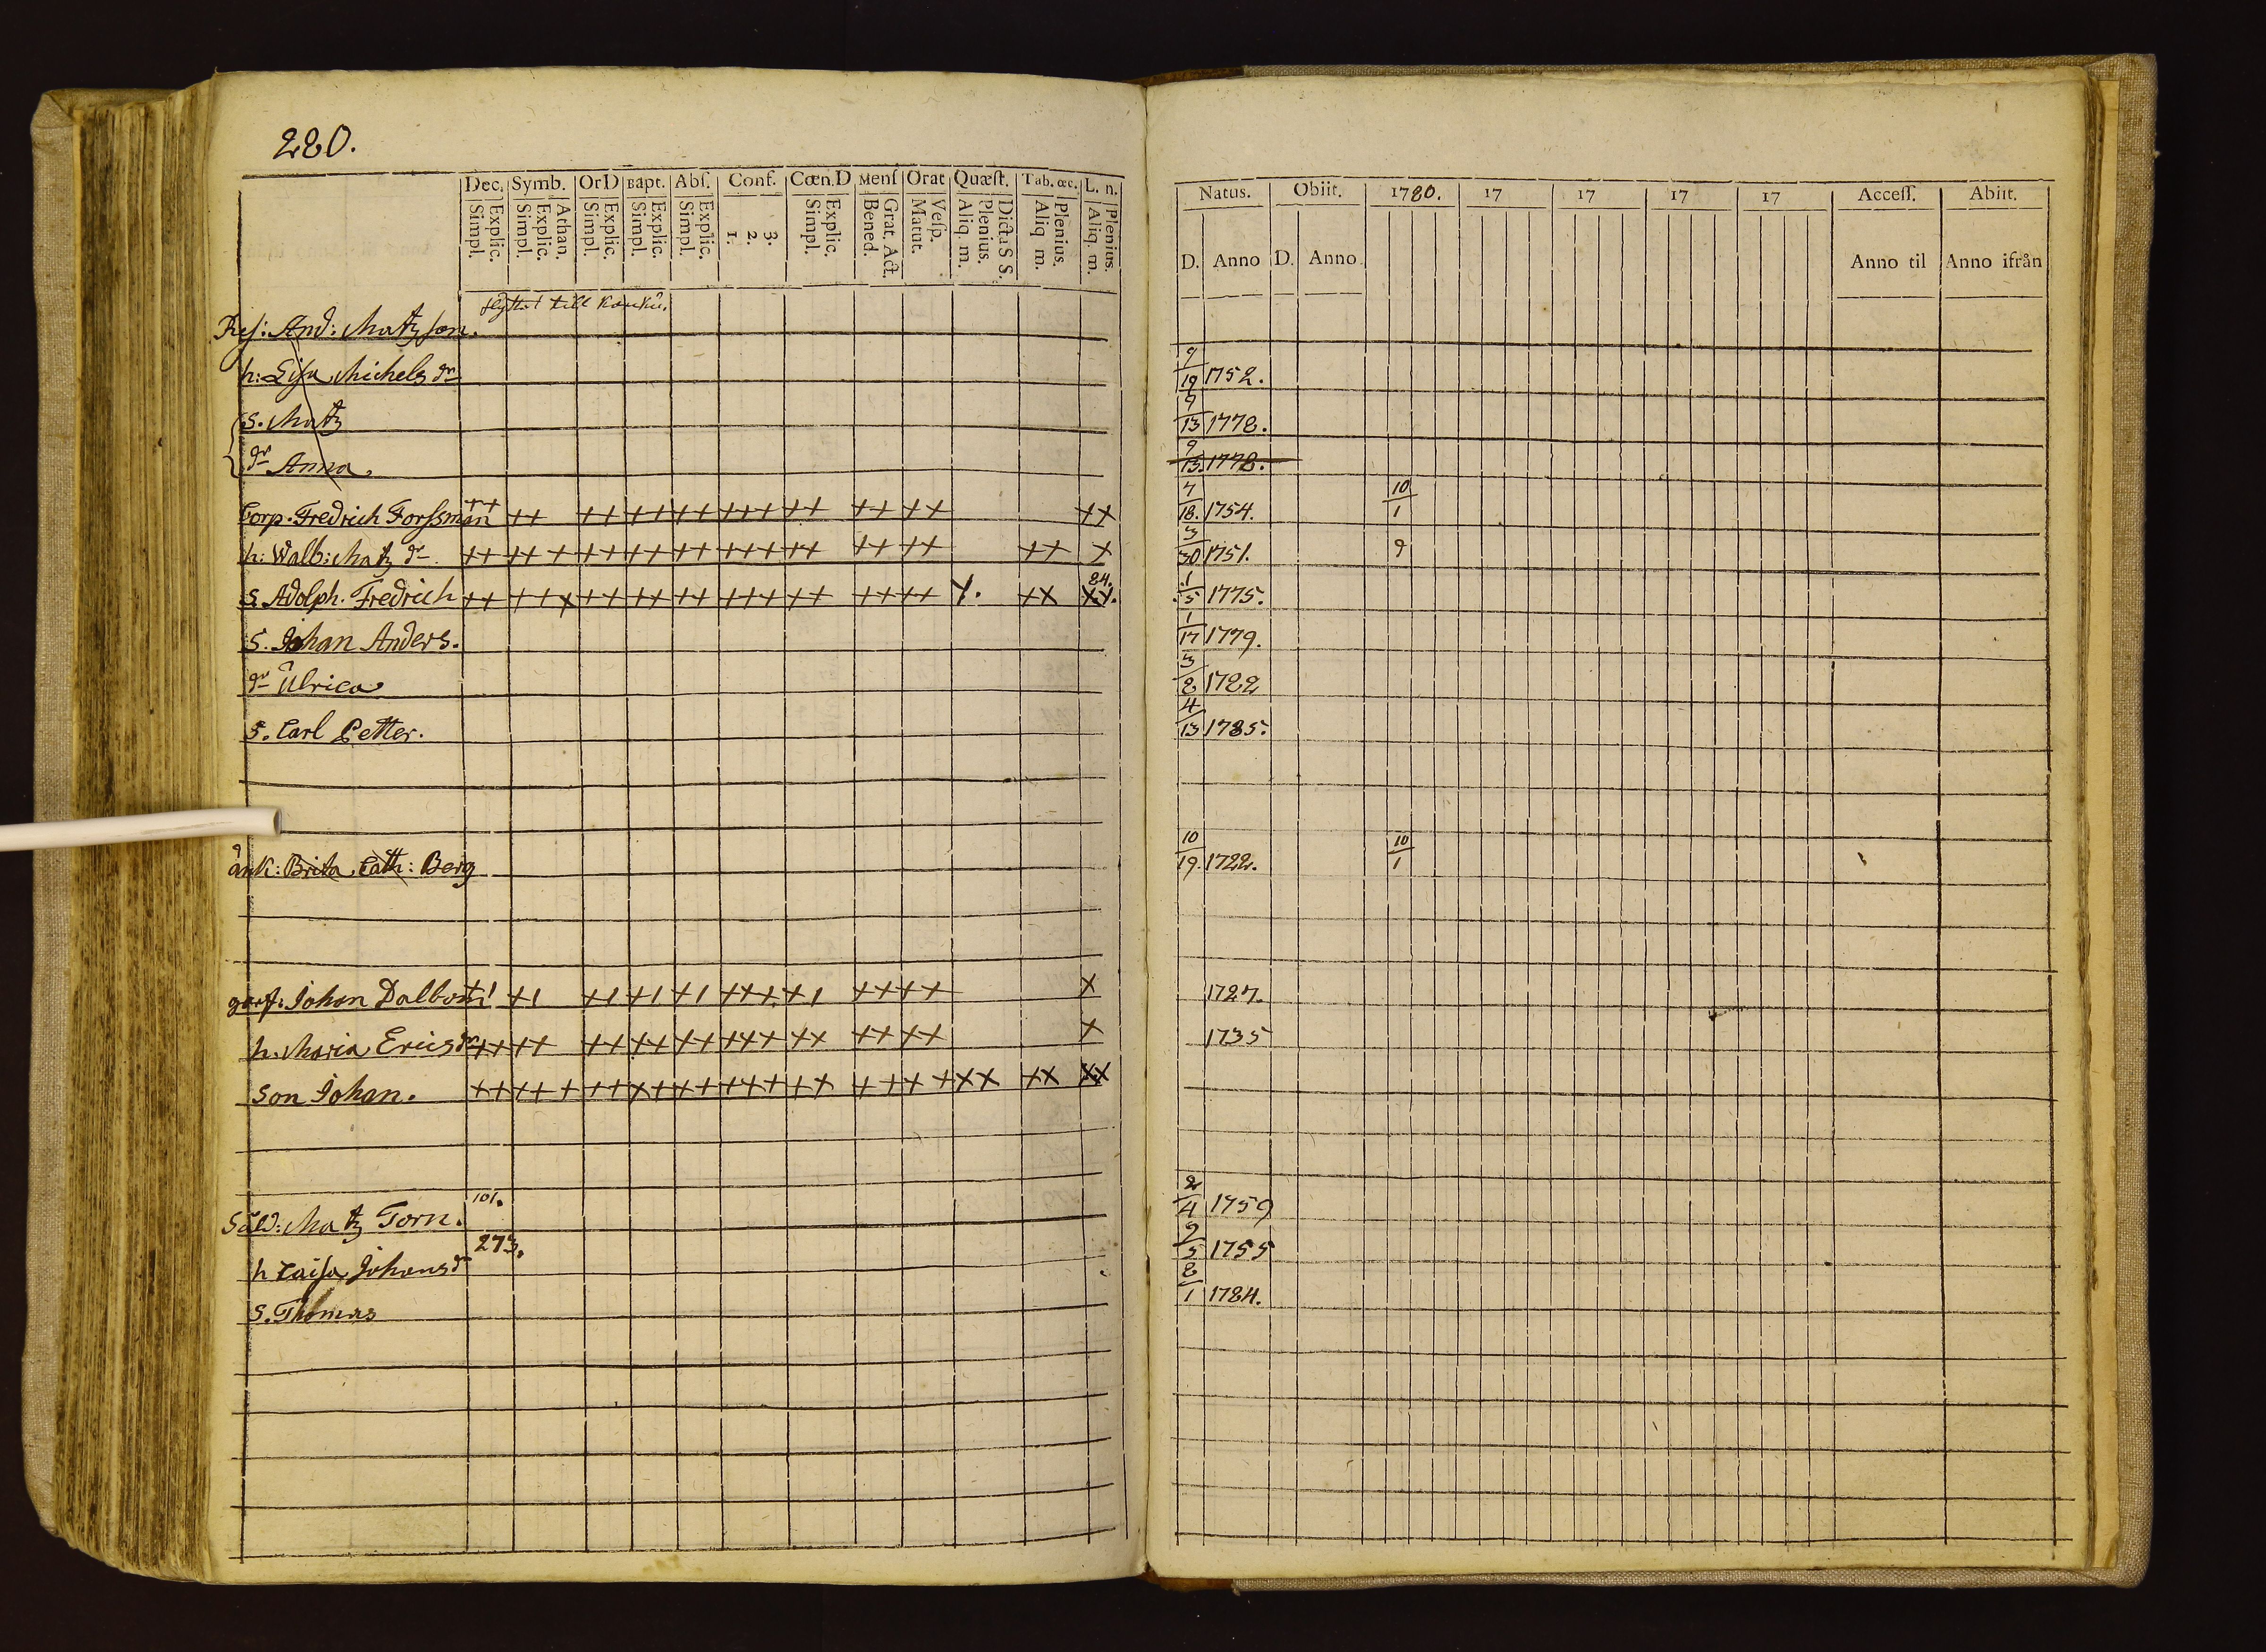 280.
Dec. Symb. OrD Bapt. Abſ. Conf. Cœn.D Menſ Orat Quæſt. Tab. œc. L. n.
Simpl. Explic. Simpl. Explic. Athan. Simpl. Explic. Simpl. Explic. Simpl. Explic. 1. 2. 3. Simpl. Explic. Bened. Grat. Act. Matut. Veſp. Aliq. m. Plenius. Dicta S S. Aliq m. Plenius. Aliq. m. Plenius.
flyttat till
Reſ: And: Matzſon.
h: Liſa Michels dr
S. Matz
dr Anna.
Corp. Fredrich Forſsman ++ ++ ++ ++ ++ +++ ++ ++ ++ ++
h: Walb: Matz dr. ++ ++ + ++ ++ ++ +++ ++ ++ ++ ++ +
S. Adolph. Fredrich ++ ++ + ++ ++ ++ +++ ++ ++ ++ ++ 84.
S. Johan Anders.
dr Ulrica
S. Carl Petter.
änk: Brita Cath: Berg
Johan Dalbom +1 +1 +1 +1 +1 +++ +1 ++ ++ +
h. Maria Ericsdr ++ ++ ++ ++ ++ +++ ++ ++ ++ +
Son Johan. ++ ++ + ++ ++ ++ +++ ++ ++ ++ ++ ++ ++
101.
Sold: Matz Torn.
273.
h Caiſa Johansdr
S. Thomas
Natus. Obiit. 1780. 17 17 17 17 Acceſſ. Abiit.
D. Anno D. Anno. Anno til Anno ifrån
9/19 1752.
9/13 1778.
9/13 1778.
7/18. 1754. 10/1
3/30 1751. 9
1/5 1775.
1/17 1779.
3/8 1782
4/13 1785.
10/19. 1722. 10/1
1727.
1735
2/4 1759
9/5 1755
8/1 1784.